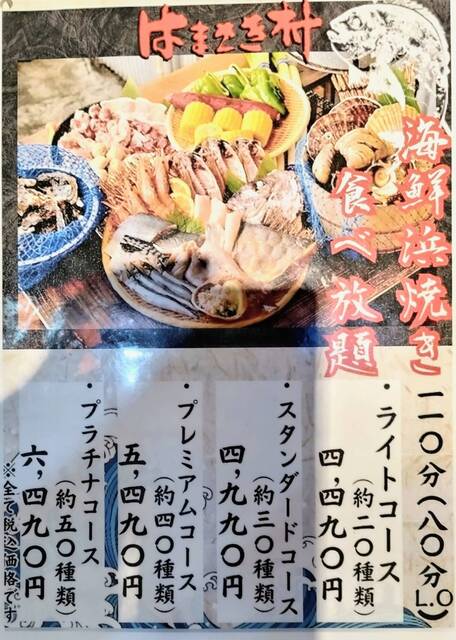 はまさき村
海鮮浜焼き
食べ放題
一一〇分(八〇分L.O)
・ライトコース
(約二〇種類)
四,四九〇円
・スタンダードコース
(約三〇種類)
四,九九〇円
・プレミアムコース
(約四〇種類)
五,四九〇円
・プラチナコース
(約五〇種類)
六,四九〇円
※全て税込価格です